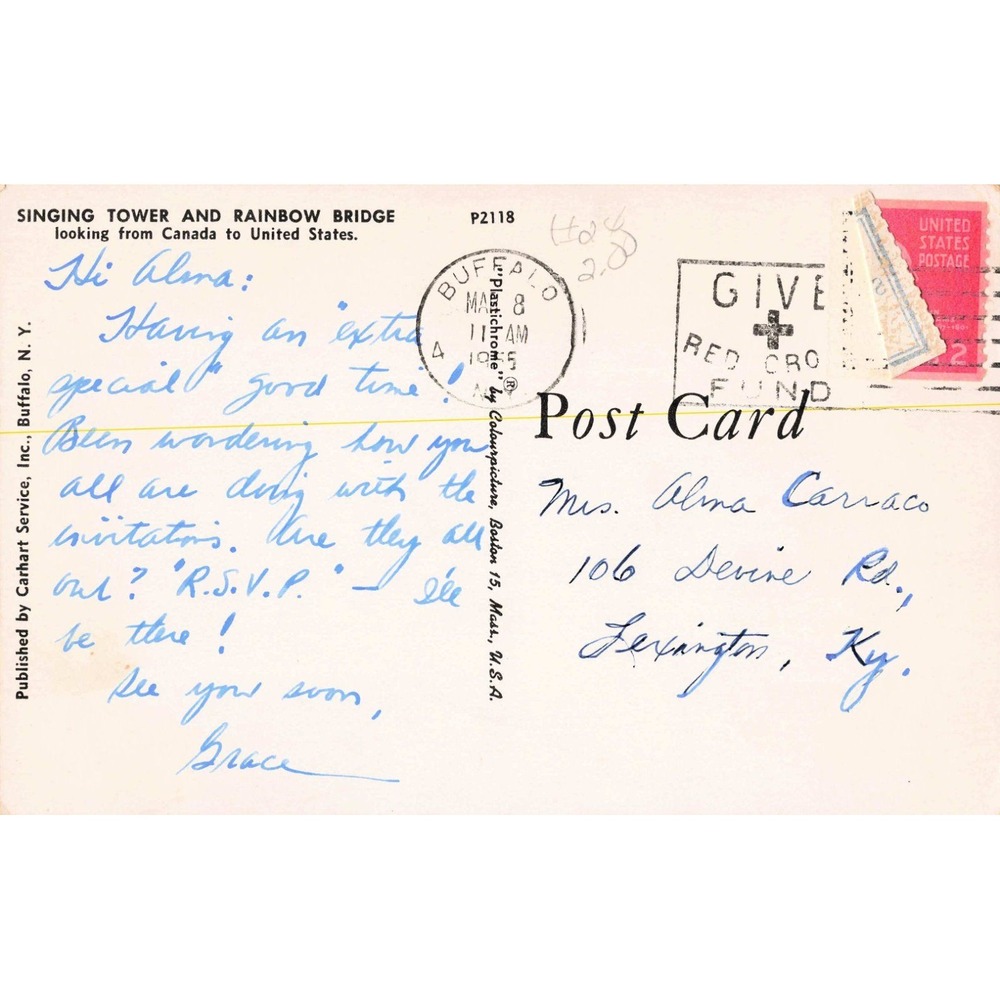 SINGING TOWER AND RAINBOW BRIDGE
looking from Canada to United States.
P2118
Hi Alma:
Having an "extra
special" good time!
Been wondering how you
all are doing with the
invitations. Are they all
out? "R.S.V.P." – I'll
be there!
See you soon,
Grace
Published by Carhart Service, Inc., Buffalo, N. Y.
"Plastichrome" ® by Colourpicture, Boston 15, Mass., U.S.A.
BUFFALO
MA 8
11 AM
1955
4
GIVE
RED CRO
FUND
UNITED
STATES
POSTAGE
2
Post Card
Mrs. Alma Carraco
106 Devine Rd.,
Lexington, Ky.